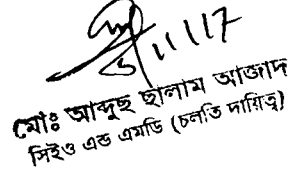 ১১/১/১৭
মোঃ আব্দুছ ছালাম আজাদ
সিইও এন্ড এমডি (চলতি দায়িত্ব)